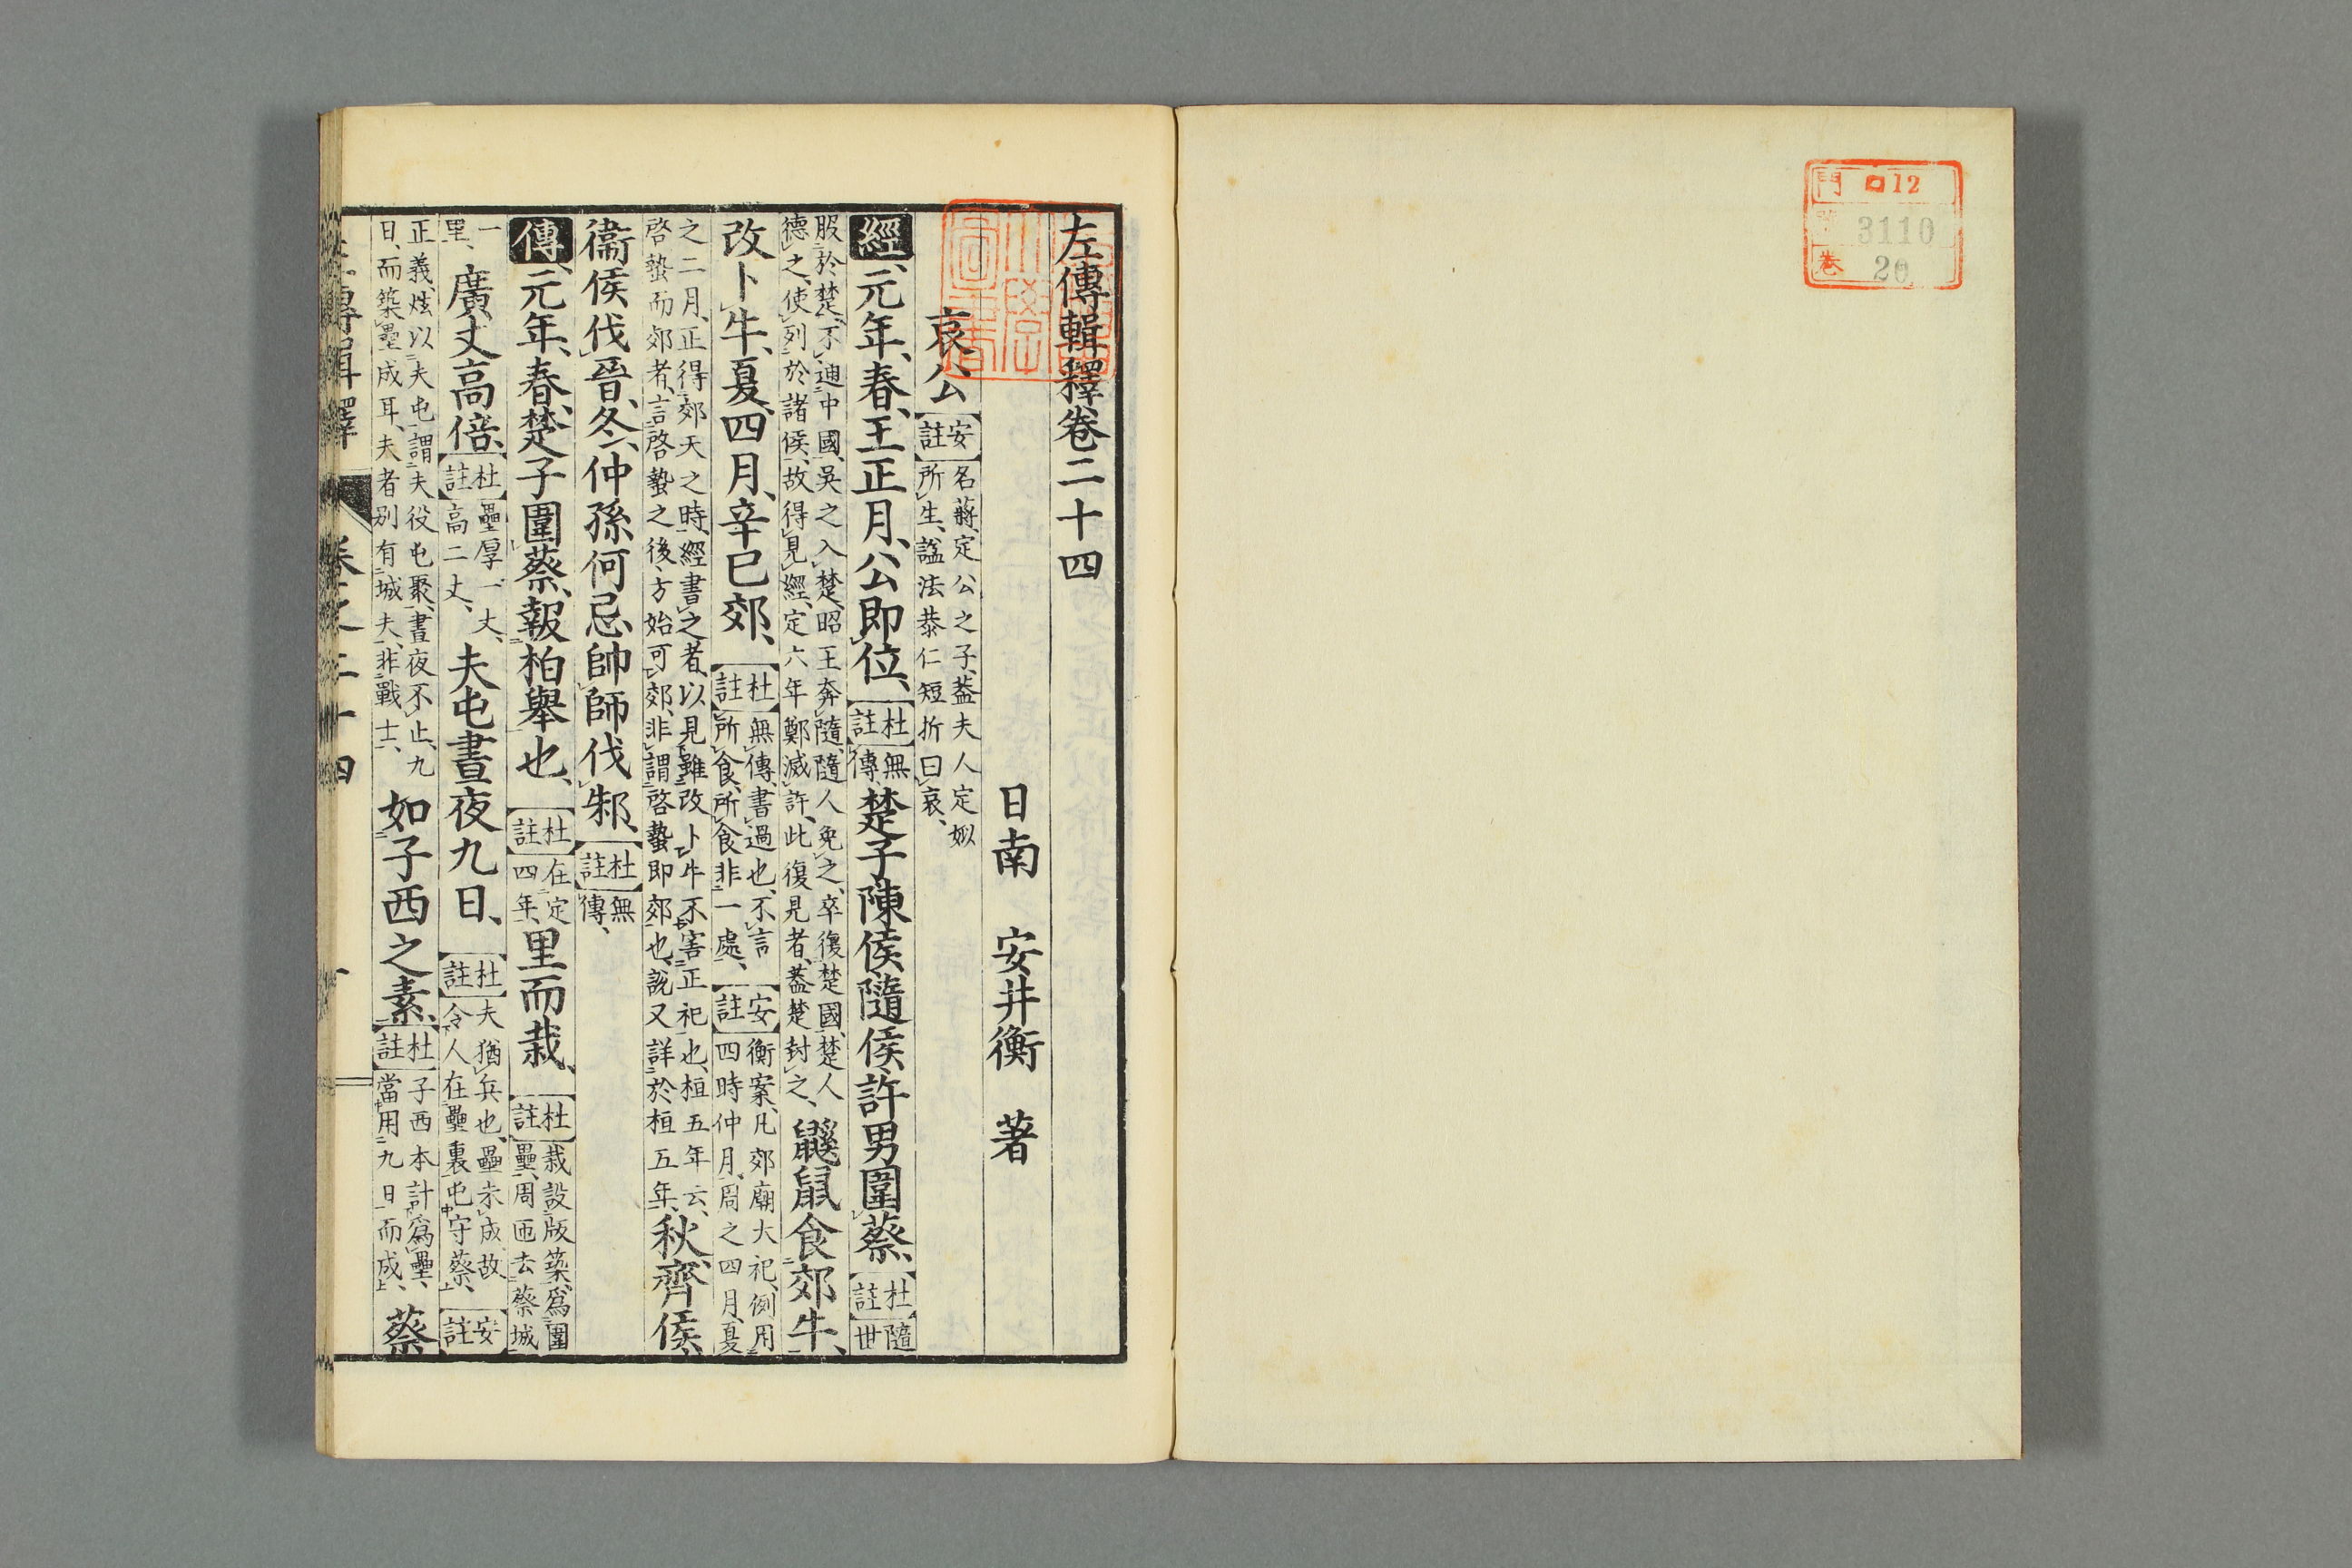 門 ロ12
號 3110
卷 20
左傳輯釋卷二十四
日南 安井衡 著
哀公 安註 名蔣、定公之子、蓋夫人定姒所生、諡法恭仁短折曰哀、
經、元年、春、王正月、公即位、杜註 無傳、楚子陳侯隨侯許男圍蔡、杜註 隨世
服於楚、不通中國、吳之入楚、昭王奔隨、隨人免之、卒復楚國、楚人德之、使列於諸侯、故得見經、定六年鄭滅許、此復見者、蓋楚封之、鼷鼠食郊牛、
改卜牛、夏四月、辛巳郊、杜註 無傳、書過也、不言所食、所食非一處、安註 衡案、凡郊廟大祀、例用四時仲月、周之四月、夏
之二月、正得郊天之時、經書之者、以見雖改卜牛不害正祀也、桓五年云、啓蟄而郊者、言啓蟄之後、方始可郊、非謂啓蟄即郊也、說又詳於桓五年、秋、齊侯
衞侯伐晉、冬、仲孫何忌帥師伐邾、杜註 無傳、
傳、元年、春、楚子圍蔡、報柏舉也、杜註 在定四年、里而栽、杜註 栽設版築、爲圍壘、周匝去蔡城
一里、廣丈高倍、杜註 壘厚一丈、高二丈、夫屯晝夜九日、杜註 夫猶兵也、壘未成、故令人在壘裏屯守蔡、安註
正義、炫以夫屯謂夫役屯聚、晝夜不止、九日、而築壘成耳、夫者別有城夫、非戰士、如子西之素、杜註 子西本計爲壘、當用九日而成、蔡
左傳輯釋 卷之二十四 一